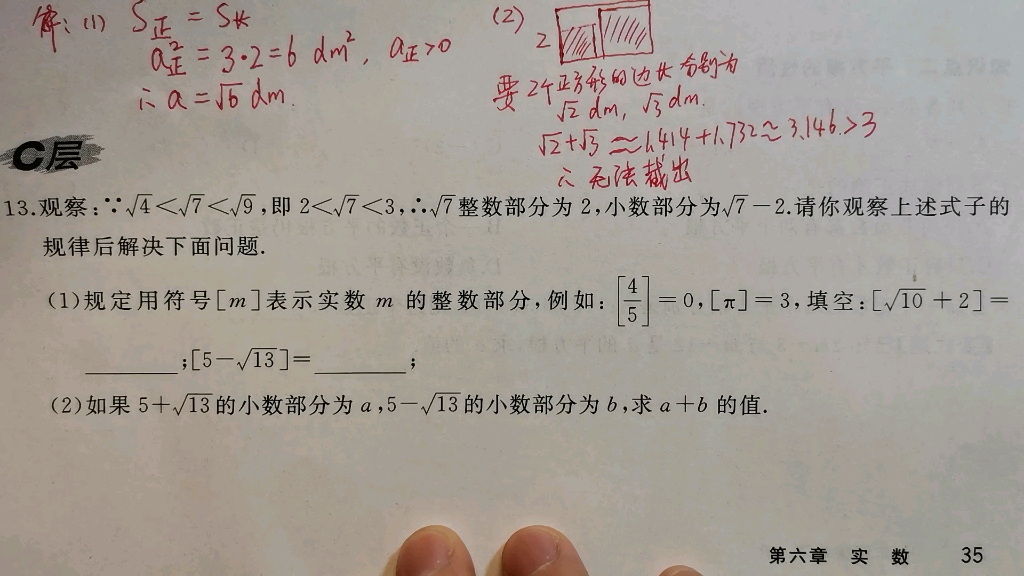 解:(1) S正 = S长
a正² = 3·2 = 6 dm², a正>0
∴ a = √6 dm.
(2)
2
要2个正方形的边长分别为
√2 dm, √3 dm.
√2+√3 ≈1.414+1.732≈3.146>3
∴ 无法裁出
C层
13.观察:∵√4<√7<√9,即 2<√7<3,∴√7整数部分为 2,小数部分为√7-2.请你观察上述式子的
规律后解决下面问题.
(1)规定用符号[m]表示实数 m 的整数部分,例如:[4/5]=0,[π]=3,填空:[√10+2]=
______;[5-√13]=______;
(2)如果 5+√13的小数部分为 a,5-√13的小数部分为 b,求 a+b 的值.
第六章 实 数 35